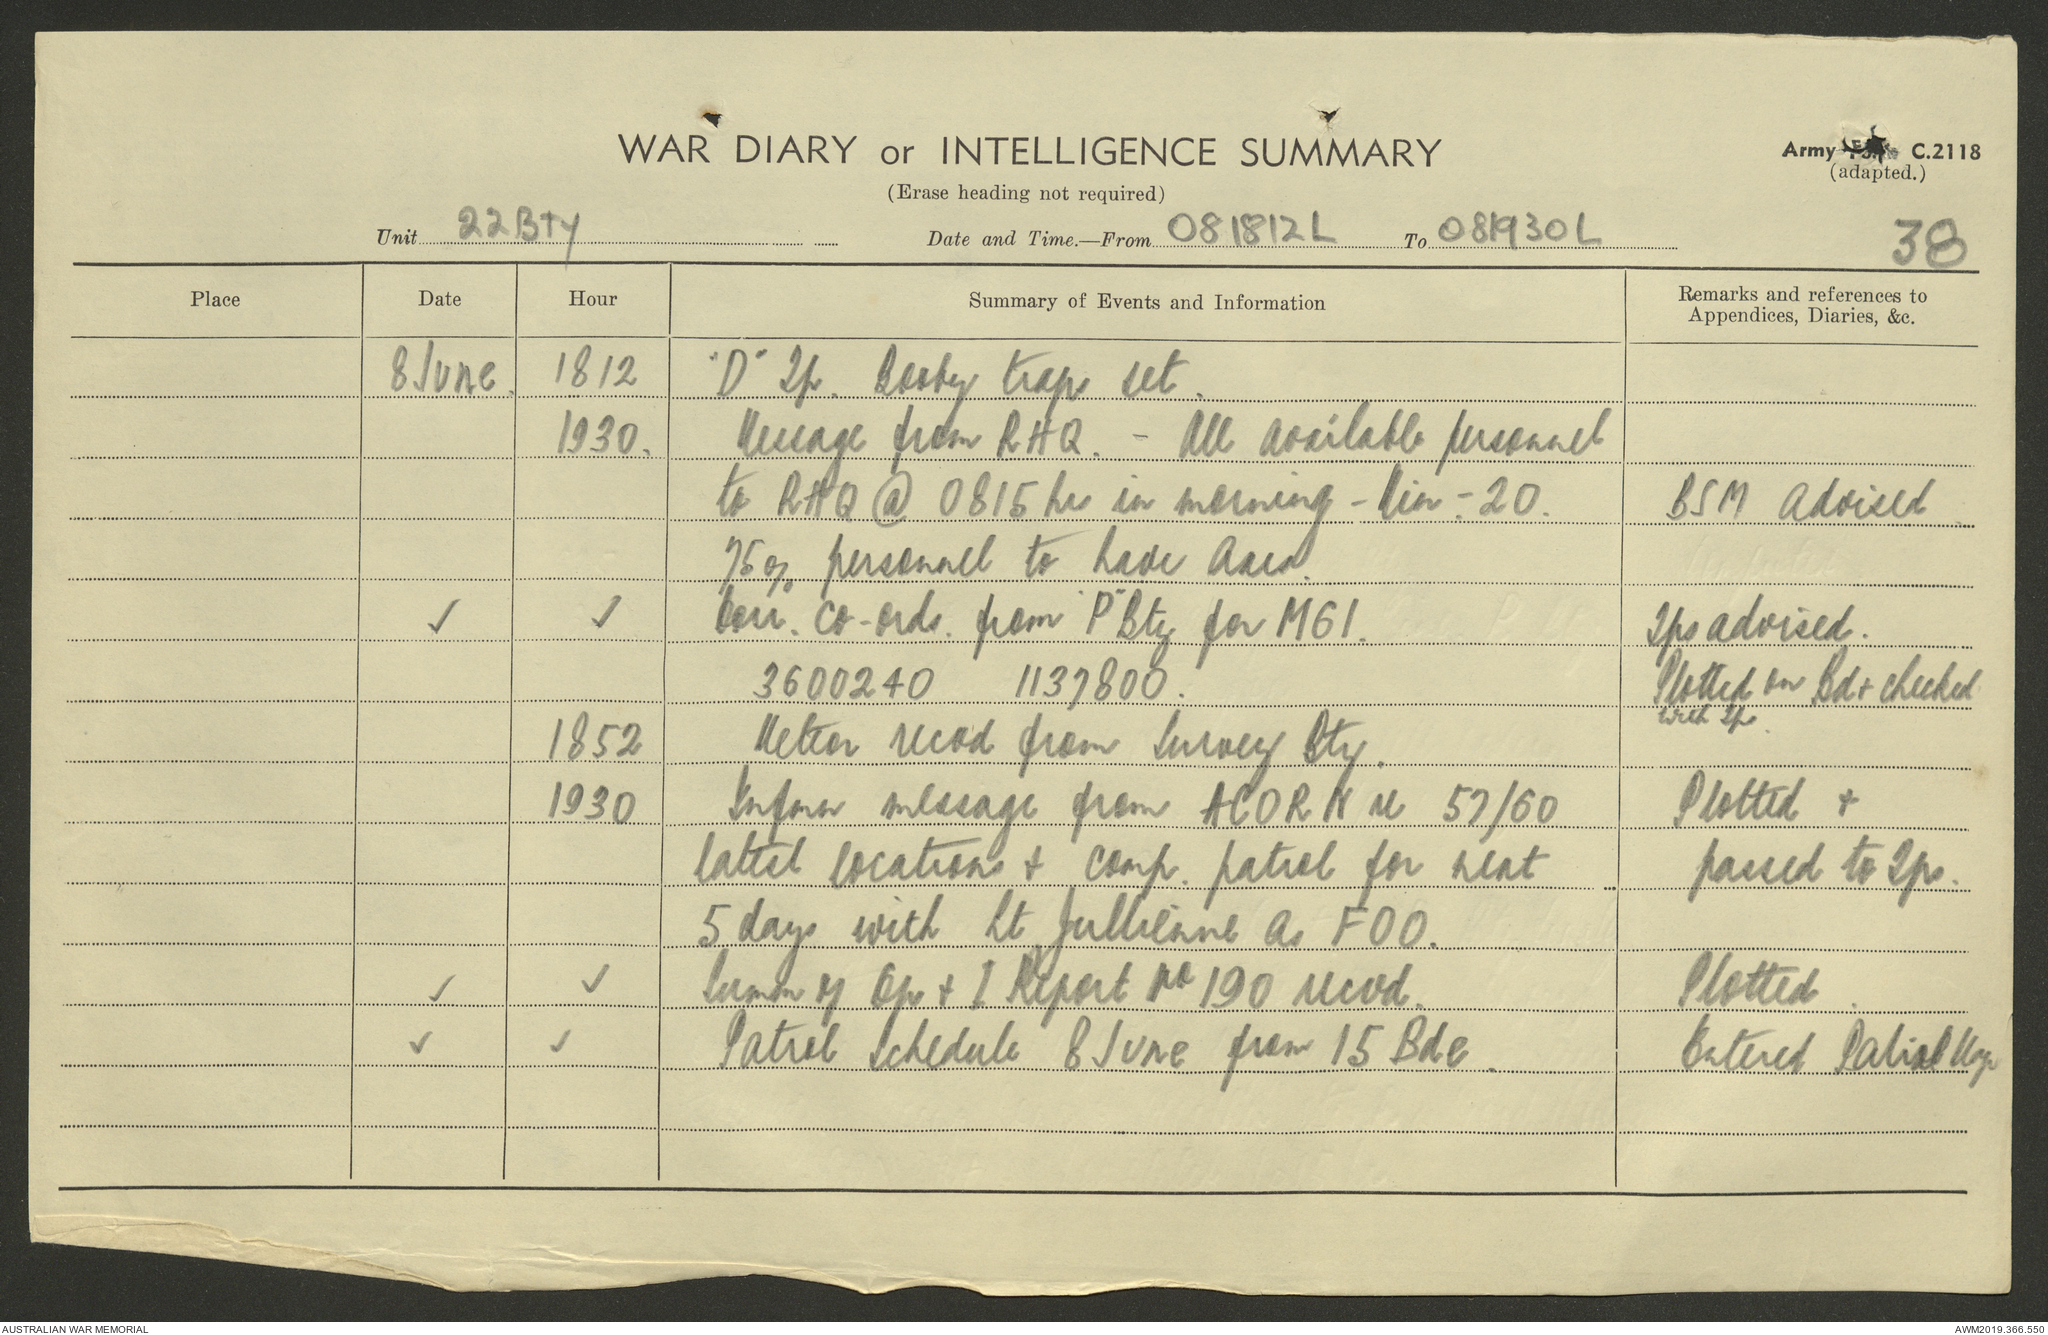 WAR DIARY or INTELLIGENCE SUMMARY
Army C.2118
(adapted.)
(Erase heading not required)
Unit 22 Bty Date and Time.—From 081812L To 081930L
38
Place Date Hour Summary of Events and Information Remarks and references to Appendices, Diaries, &c.
8 June 1812 "D" Tp. Booby traps set.
1930. Message from RHQ. - All available personnel
to RHQ @ 0815 hrs in morning - Min - 20. BSM advised
75% personnel to have
✓ ✓ Corr. co-ords. from "P" Bty for MG1. Tps advised.
3600240 1137800. Plotted on Bd + checked
with Tp.
1852 Meteor recvd from Survey Bty.
1930 Infmn message from ACORN re 57/60 Plotted +
latest locations + comp. patrol for next passed to Tps.
5 days with Lt Jullienne as FOO.
✓ ✓ Summ of Op + I Report no 190 recvd. Plotted.
✓ ✓ Patrol Schedule 8 June from 15 Bde. Entered Patrol Map
AUSTRALIAN WAR MEMORIAL
AWM2019.366.550